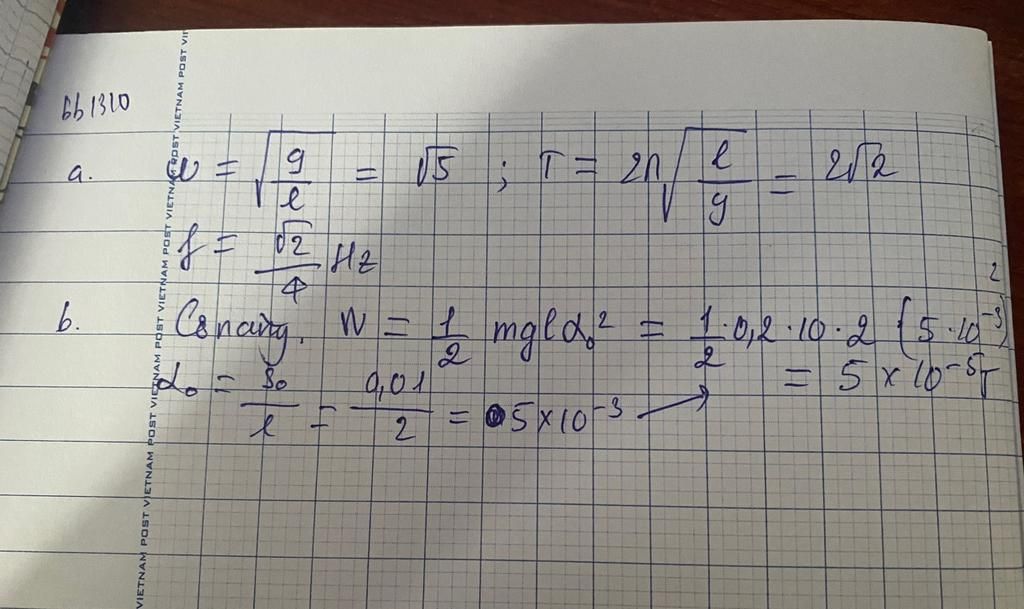 bb1310
a. ω = √(g/l) = √5 ; T = 2π√(l/g) = 2√2
f = √2/4 Hz
b. Cơ năng. W = 1/2 mglα₀² = 1/2 · 0,2 · 10 · 2 (5 · 10⁻³)²
= 5 × 10⁻⁵ J
α₀ = s₀/l = 0,01/2 = 5 × 10⁻³
VIETNAM POST VIETNAM POST VIETNAM POST VIETNAM POST VIETNAM POST VIETNAM POST VIETNAM POST VI